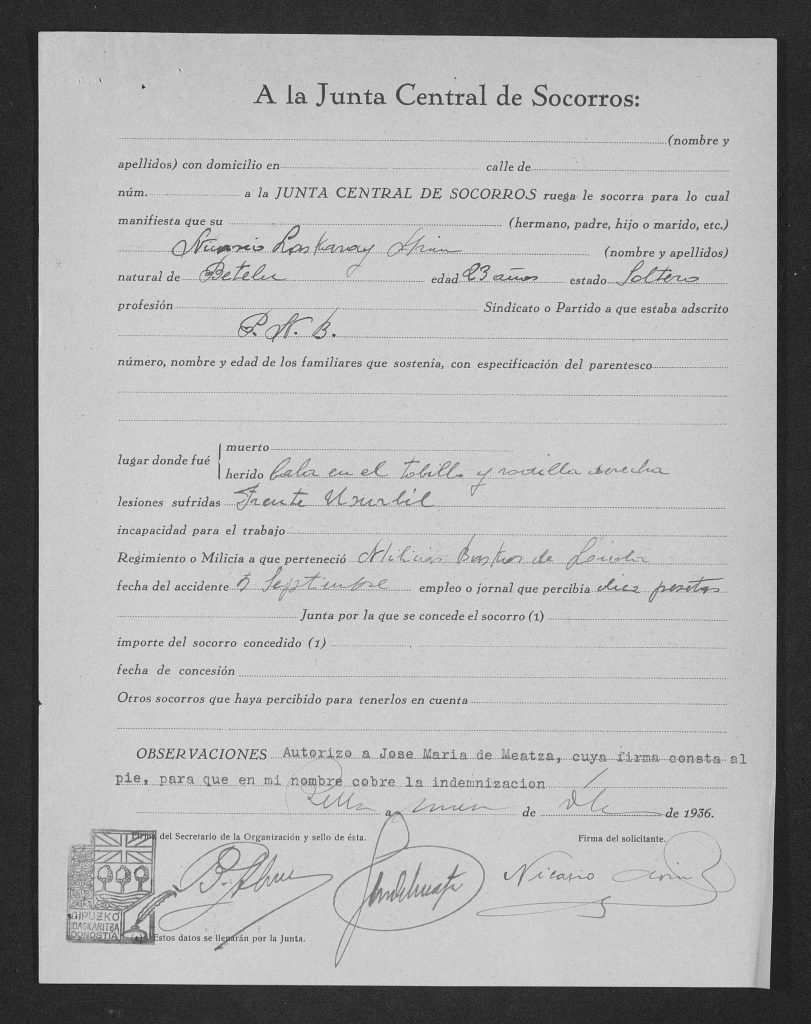 A la Junta Central de Socorros:
(nombre y
apellidos) con domicilio en calle de
núm. a la JUNTA CENTRAL DE SOCORROS ruega le socorra para lo cual
manifiesta que su (hermano, padre, hijo o marido, etc.)
Nicasio (nombre y apellidos)
natural de Betelu edad 23 años estado Soltero
profesión Sindicato o Partido a que estaba adscrito
P. N. B.
número, nombre y edad de los familiares que sostenia, con especificación del parentesco
lugar donde fué
muerto
herido bala en el tobillo y rodilla derecha
lesiones sufridas Frente Usurbil
incapacidad para el trabajo
Regimiento o Milicia a que perteneció Milicias Baskas de
fecha del accidente 5 Septiembre empleo o jornal que percibia diez pesetas
Junta por la que se concede el socorro (1)
importe del socorro concedido (1)
fecha de concesión
Otros socorros que haya percibido para tenerlos en cuenta
OBSERVACIONES Autorizo a Jose Maria de Meatza, cuya firma consta al
pie, para que en mi nombre cobre la indemnizacion
a de de 1936.
Firma del Secretario de la Organización y sello de ésta. Firma del solicitante.
Nicasio
GIPUZKO
BASKARITZA
DONOSTIA
Estos datos se llenarán por la Junta.